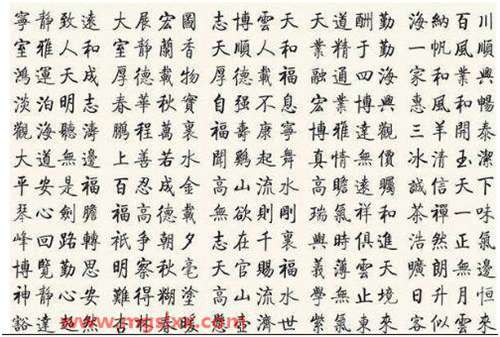 寧靜致遠 大展宏圖 志博雲天 天道酬勤 海納百川
室雅人和 室靜蘭香 大順人和 業精于勤 一帆風順
鴻運天成 厚德載物 厚德載福 融通四海 家和業興
淡泊明志 春華秋實 自强不息 宏業博興 惠風和暢
觀海聽濤 鵬程萬裏 福壽康寧 博雅達觀 三羊開泰
大道無邊 上善若水 聞鷄起舞 真情無價 冰清玉潔
平安是福 百忍成金 高山流水 高瞻遠矚 誠信天下
琴心劍膽 福高德載 無欲則剛 瑞氣祥和 茶禪一味
峰回路轉 祇争朝夕 志在千裏 與時俱進 浩然正氣
博覽勤思 明察秋毫 天官賜福 義薄雲天 無邊
神靜心安 難得糊塗 高山流水 學無止境 日升月恒
豁達超然 春暖 懸壺濟世 紫氣東來 客似雲來